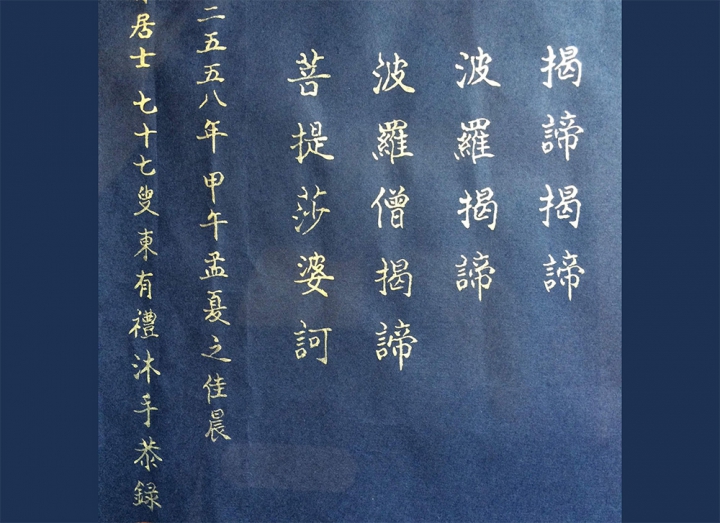 揭諦揭諦
波羅揭諦
波羅僧揭諦
菩提莎婆訶
二五五八年甲午孟夏之佳晨
居士七十七叟東有禮沐手恭録